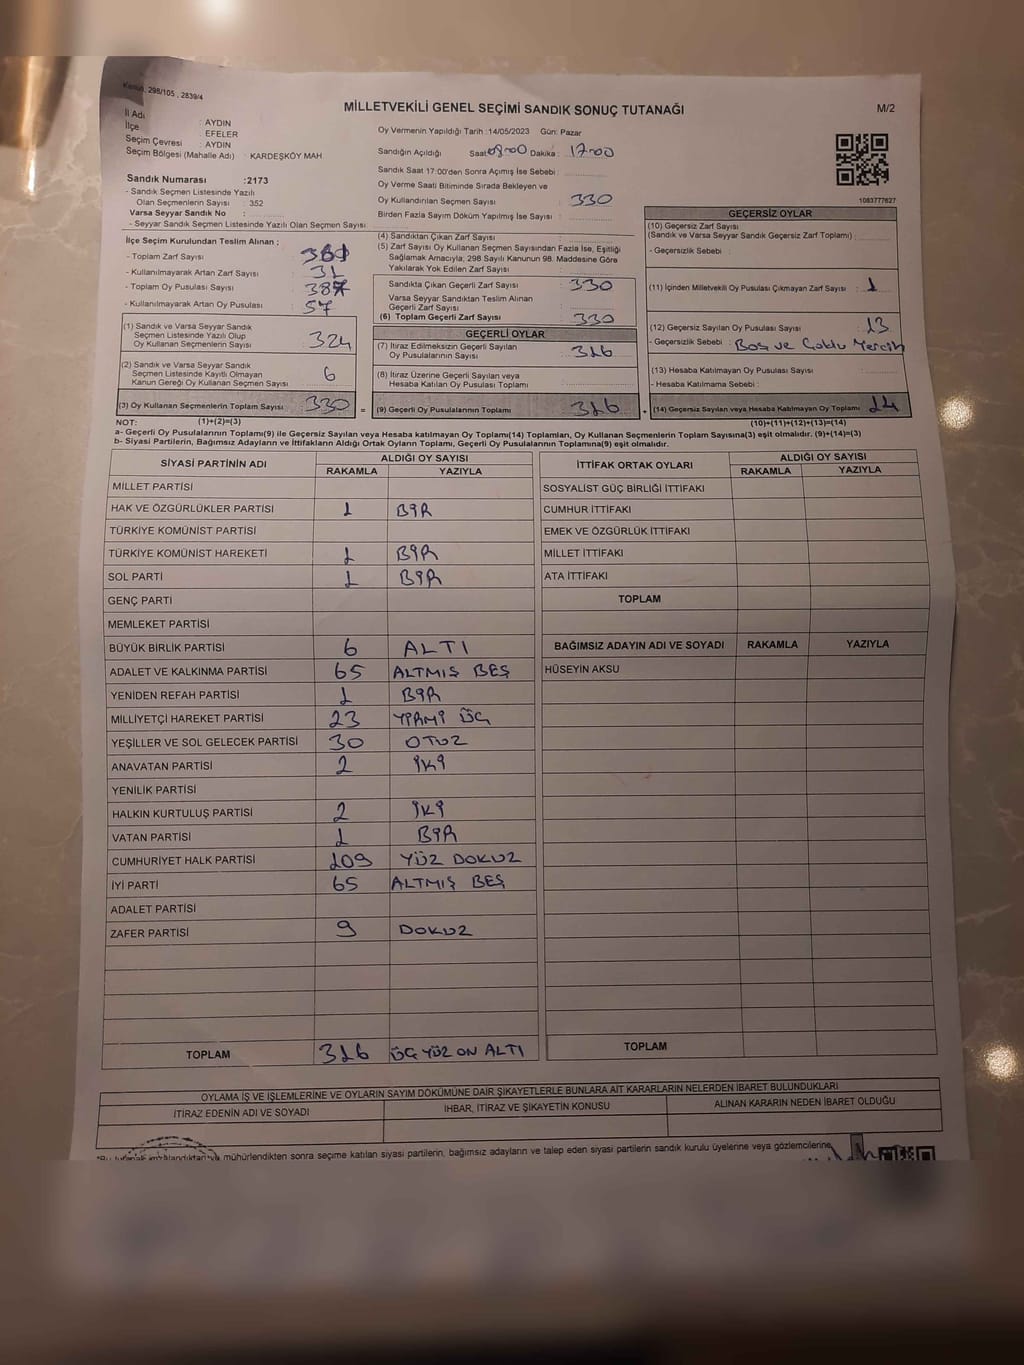 Kanun, 298/105, 2839/4
MİLLETVEKİLİ GENEL SEÇİMİ SANDIK SONUÇ TUTANAĞI
M/2
İl Adı : AYDIN
İlçe : EFELER
Seçim Çevresi : AYDIN
Seçim Bölgesi (Mahalle Adı) : KARDEŞKÖY MAH
Sandık Numarası :2173
- Sandık Seçmen Listesinde Yazılı
Olan Seçmenlerin Sayısı : 352
Varsa Seyyar Sandık No :
- Seyyar Sandık Seçmen Listesinde Yazılı Olan Seçmen Sayısı :
Oy Vermenin Yapıldığı Tarih :14/05/2023 Gün: Pazar
Sandığın Açıldığı Saat 08:00 Dakika : 17:00
Sandık Saat 17:00'den Sonra Açımış İse Sebebi :
Oy Verme Saati Bitiminde Sırada Bekleyen ve
Oy Kullandırılan Seçmen Sayısı : 330
Birden Fazla Sayım Döküm Yapılmış İse Sayısı :
1083777627
İlçe Seçim Kurulundan Teslim Alınan ;
- Toplam Zarf Sayısı :
- Kullanılmayarak Artan Zarf Sayısı : 31
- Toplam Oy Pusulası Sayısı : 387
- Kullanılmayarak Artan Oy Pusulası : 57
(1) Sandık ve Varsa Seyyar Sandık
Seçmen Listesinde Yazılı Olup
Oy Kullanan Seçmenlerin Sayısı : 324
(2) Sandık ve Varsa Seyyar Sandık
Seçmen Listesinde Kayıtlı Olmayan
Kanun Gereği Oy Kullanan Seçmen Sayısı : 6
(3) Oy Kullanan Seçmenlerin Toplam Sayısı : 330
(1)+(2)=(3)
(4) Sandıktan Çıkan Zarf Sayısı :
(5) Zarf Sayısı Oy Kullanan Seçmen Sayısından Fazla İse, Eşitliği
Sağlamak Amacıyla, 298 Sayılı Kanunun 98. Maddesine Göre
Yakılarak Yok Edilen Zarf Sayısı :
Sandıkta Çıkan Geçerli Zarf Sayısı : 330
Varsa Seyyar Sandıktan Teslim Alınan
Geçerli Zarf Sayısı :
(6) Toplam Geçerli Zarf Sayısı : 330
GEÇERLİ OYLAR
(7) İtiraz Edilmeksizin Geçerli Sayılan
Oy Pusulalarının Sayısı : 316
(8) İtiraz Üzerine Geçerli Sayılan veya
Hesaba Katılan Oy Pusulası Toplamı :
= (9) Geçerli Oy Pusulalarının Toplamı : 316 +
GEÇERSİZ OYLAR
(10) Geçersiz Zarf Sayısı
(Sandık ve Varsa Seyyar Sandık Geçersiz Zarf Toplamı) :
- Geçersizlik Sebebi :
(11) İçinden Milletvekili Oy Pusulası Çıkmayan Zarf Sayısı : 1
(12) Geçersiz Sayılan Oy Pusulası Sayısı : 13
- Geçersizlik Sebebi : Boş ve Çoklu Tercih
(13) Hesaba Katılmayan Oy Pusulası Sayısı :
- Hesaba Katılmama Sebebi :
(14) Geçersiz Sayılan veya Hesaba Katılmayan Oy Toplamı : 14
(10)+(11)+(12)+(13)=(14)
NOT:
a- Geçerli Oy Pusulalarının Toplamı(9) ile Geçersiz Sayılan veya Hesaba katılmayan Oy Toplamı(14) Toplamları, Oy Kullanan Seçmenlerin Toplam Sayısına(3) eşit olmalıdır. (9)+(14)=(3)
b- Siyasi Partilerin, Bağımsız Adayların ve İttifakların Aldığı Ortak Oyların Toplamı, Geçerli Oy Pusulalarının Toplamına(9) eşit olmalıdır.
SİYASİ PARTİNİN ADI ALDIĞI OY SAYISI
RAKAMLA YAZIYLA
MİLLET PARTİSİ
HAK VE ÖZGÜRLÜKLER PARTİSİ 1 BİR
TÜRKİYE KOMÜNİST PARTİSİ
TÜRKİYE KOMÜNİST HAREKETİ 1 BİR
SOL PARTİ 1 BİR
GENÇ PARTİ
MEMLEKET PARTİSİ
BÜYÜK BİRLİK PARTİSİ 6 ALTI
ADALET VE KALKINMA PARTİSİ 65 ALTMIŞ BEŞ
YENİDEN REFAH PARTİSİ 1 BİR
MİLLİYETÇİ HAREKET PARTİSİ 23 YİRMİ ÜÇ
YEŞİLLER VE SOL GELECEK PARTİSİ 30 OTUZ
ANAVATAN PARTİSİ 2 İKİ
YENİLİK PARTİSİ
HALKIN KURTULUŞ PARTİSİ 2 İKİ
VATAN PARTİSİ 1 BİR
CUMHURİYET HALK PARTİSİ 109 YÜZ DOKUZ
İYİ PARTİ 65 ALTMIŞ BEŞ
ADALET PARTİSİ
ZAFER PARTİSİ 9 DOKUZ
TOPLAM 316 ÜÇ YÜZ ON ALTI
İTTİFAK ORTAK OYLARI ALDIĞI OY SAYISI
RAKAMLA YAZIYLA
SOSYALİST GÜÇ BİRLİĞİ İTTİFAKI
CUMHUR İTTİFAKI
EMEK VE ÖZGÜRLÜK İTTİFAKI
MİLLET İTTİFAKI
ATA İTTİFAKI
TOPLAM
BAĞIMSIZ ADAYIN ADI VE SOYADI RAKAMLA YAZIYLA
HÜSEYİN AKSU
TOPLAM
OYLAMA İŞ VE İŞLEMLERİNE VE OYLARIN SAYIM DÖKÜMÜNE DAİR ŞİKAYETLERLE BUNLARA AİT KARARLARIN NELERDEN İBARET BULUNDUKLARI
İTİRAZ EDENİN ADI VE SOYADI İHBAR, İTİRAZ VE ŞİKAYETİN KONUSU ALINAN KARARIN NEDEN İBARET OLDUĞU
mühürlendikten sonra seçime katılan siyasi partilerin, bağımsız adayların ve talep eden siyasi partilerin sandık kurulu üyelerine veya gözlemcilerine